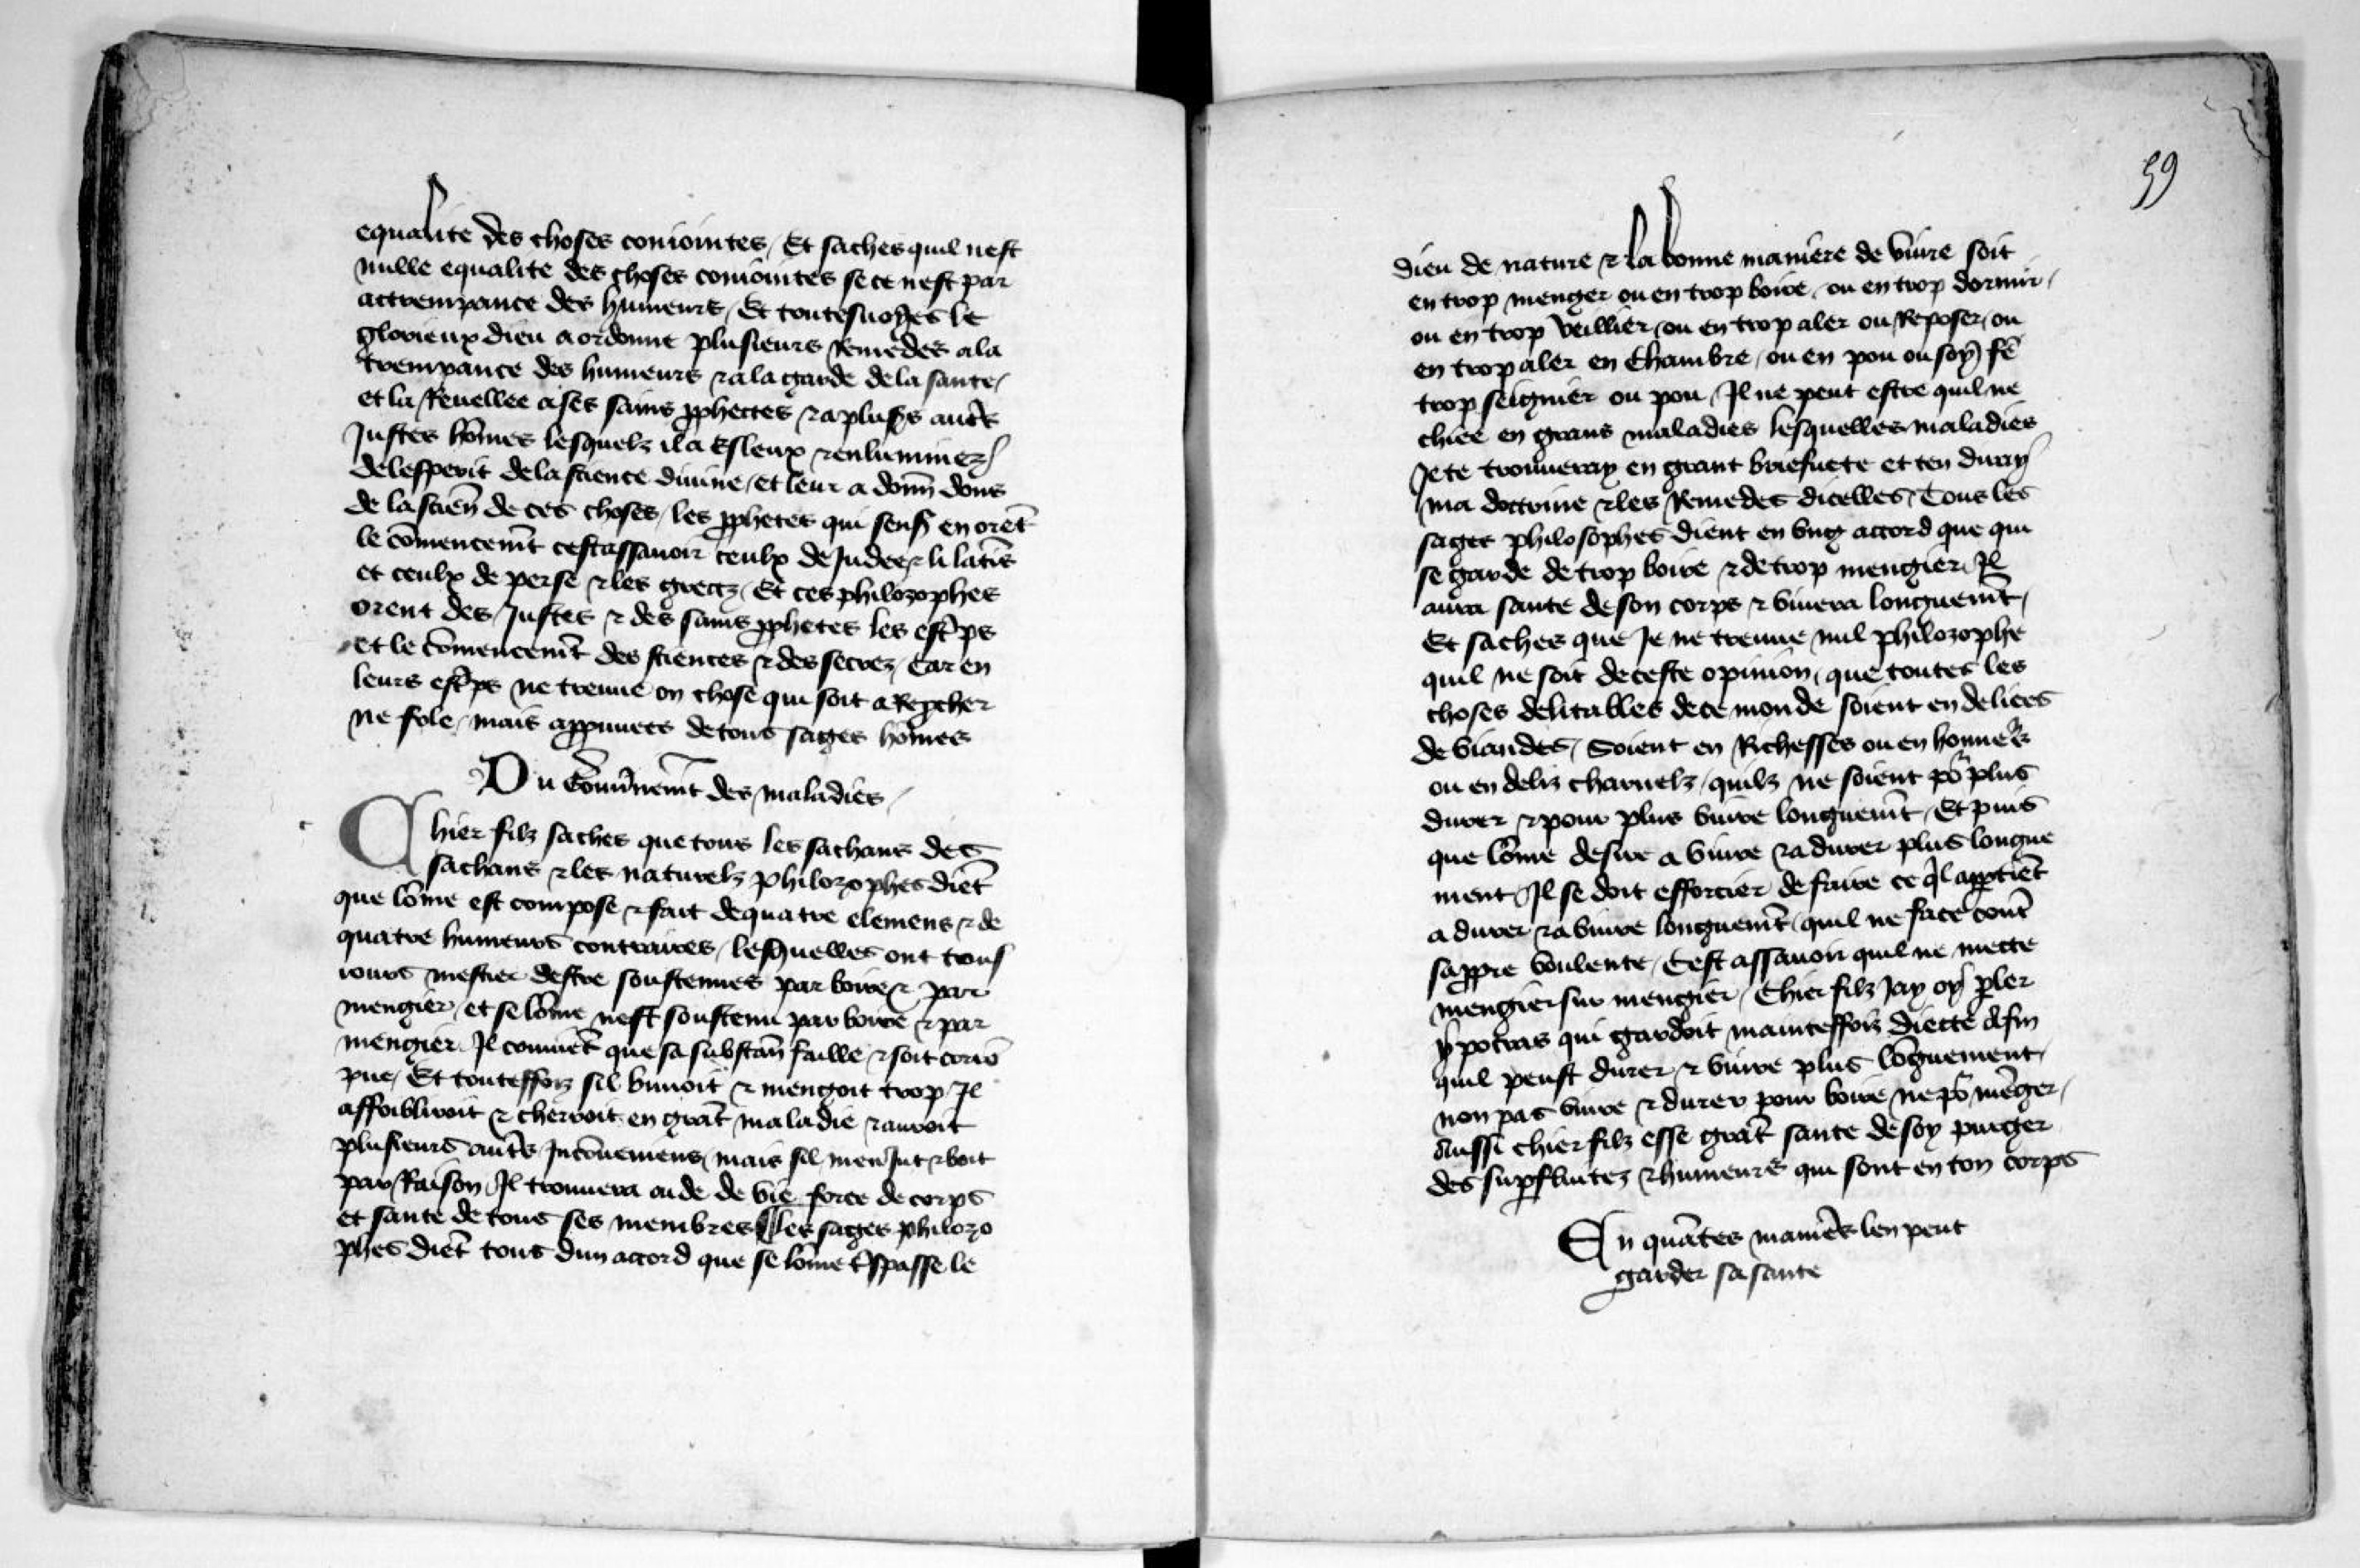 equalite des choses coniointes / Et saches quil nest
nulle equalite des choses coniointes se ce nest par
actrempance des humeurs / Et toutesuoyes le
glorieux dieu a ordonne plusieurs Remedes a la
trempance des humeurs & a la garde de la sante /
et la Reuellee a ses sains pphectes & a plus's autr̃s
Justes hõmes lesquelz il a Esleux & enluminez
de lesperit de la science diuine / et leur a donñ dons
de la scien̄ de ces choses / les pphetes qui sens' en orēt
le cõmencem̃t cestassauoir ceulx de Judee & li latīs
et ceulx de perse & les grectz / Et ces philozophes
orent des Justes & des sains pphetes les esc̃ps
et le cõmencem̃t des sciences & des secrez / Car en
leurs esc̃ps ne treuue on chose qui soit a Repcher
ne fole / mais appuuees de tous sages hõmes
Du Gouũnem̃t des maladies /
Chier filz saches que tous les sachans des
sachans & les naturelz philozophes diēt
que lõme est compose & fait de quatre elemens & de
quatre humeurs contraires / lesquelles ont tous
iours mestier destre soustenues par boire & par
mengier / et se lõme nest soustenu par boire & par
mengier Il conuiēt que sa substan̄ faille & soit corrõ
pue / Et touteffoiz sil buuoit & mengoit trop Il
affoibliroit & cherroit en grāt maladie & auroit
plusieurs autr̃s Incõueniens / mais sil menJut & boit
par Raison Il trouuera aide de vie force de corps
et sante de tous ses membres les sages philozo
phes diēt tous dun accord que se lõme t̃spasse le
59
dieu de nature & la bonne maniere de viure soit
en trop menger ou en trop boire / ou en trop dormir /
ou en trop veillier / ou en trop aler ou Reposer / ou
en trop aler en Chambre / ou en pou ou soy fē
trop seignier ou pou / Il ne peut estre quil ne
chiee en grans maladies lesquelles maladies
Je te trouueray en grant briefuete et ten diray
ma doctrine & les Remedes dicelles / Tous les
sages philosophes dient en vng accord que qui
se garde de trop boire & de trop mengier Il
aura sante de son corps & viuera longuem̃t /
Et saches que Je ne treuue nul philozophe
quil ne soit de ceste opinion / que toutes les
choses delitables de ce monde soient en delices
de viandes / Soient en Richesses ou en honneᵘrs
ou en deliz charnelz / quilz ne soient poᵘ plus
durer & pour plus viure longuem̃t / Et puis
que lõme desire a viure & a durer plus longue
ment Il se doit efforcier de faire ce ql̃ apptiēt
a durer & a viure longuem̃t / quil ne face cont̃
sa ppre voulente / Cest assauoir quil ne mecte
mengier sur mengier / Chier filz Jay oy pler
ypotras qui gardoit mainteffoiz diecte afin
quil peust durer & viure plus lõguement /
non pas viure & durer pour boire ne poᵘ mēger /
Aussi chier filz esse grāt sante de soy purger
des supfluitez & humeurs qui sont en ton corps
En quātes manier̃s len peut
garder sa sante